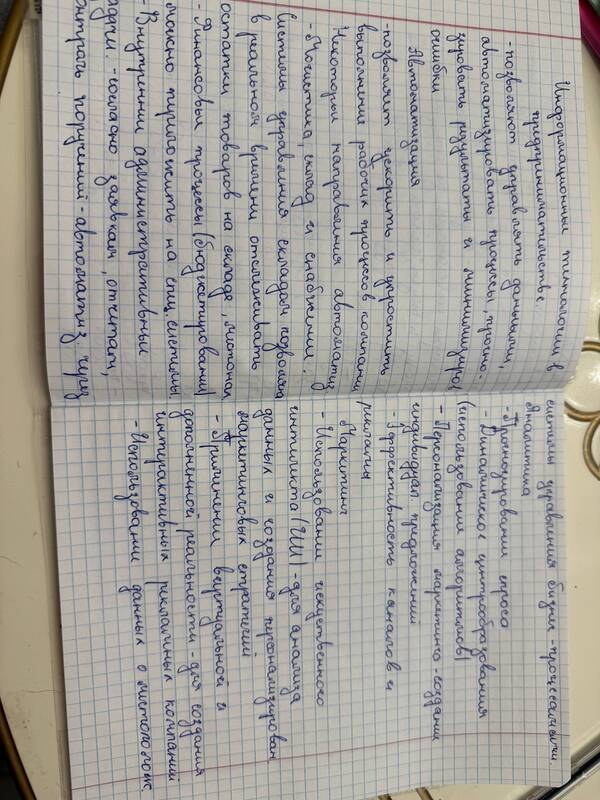 Информационные технологии в
предпринимательстве.
- позволяют управлять данными,
автоматизировать процессы, прогно-
зировать результаты и минимизиров
ошибки
Автоматизация
- позволяет ускорить и упростить
выполнение рабочих процессов компании
Некоторые направления автоматиз
- Логистика, склад и снабжении.
Системы управления складом позволяя
в реальном времени отслеживать
остатки товаров на складе,
- Финансовые процессы (бюджетирование)
можно переложить на спец. системы
- Внутренние административные
задачи. - согласно заявкам, отчетам,
контроль поручений - автоматиз через
системы управления бизнес-процессами.
Аналитика
- Прогнозировании спроса
- Динамическое ценообразования
(использовании алгоритмов)
- Персонализация маркетинга создании
индивидуал предложений
- Эффективность каналов и
реклама
Маркетинг
- Использовании искуственного
интилекта (ИИ) - для анализа
данных и создания персонализирован
маркетинговых стратегий
- Применении виртуальной и
дополненной реальности - для создания
интерактивных рекламных компаний
- Использовании данных о местополож.